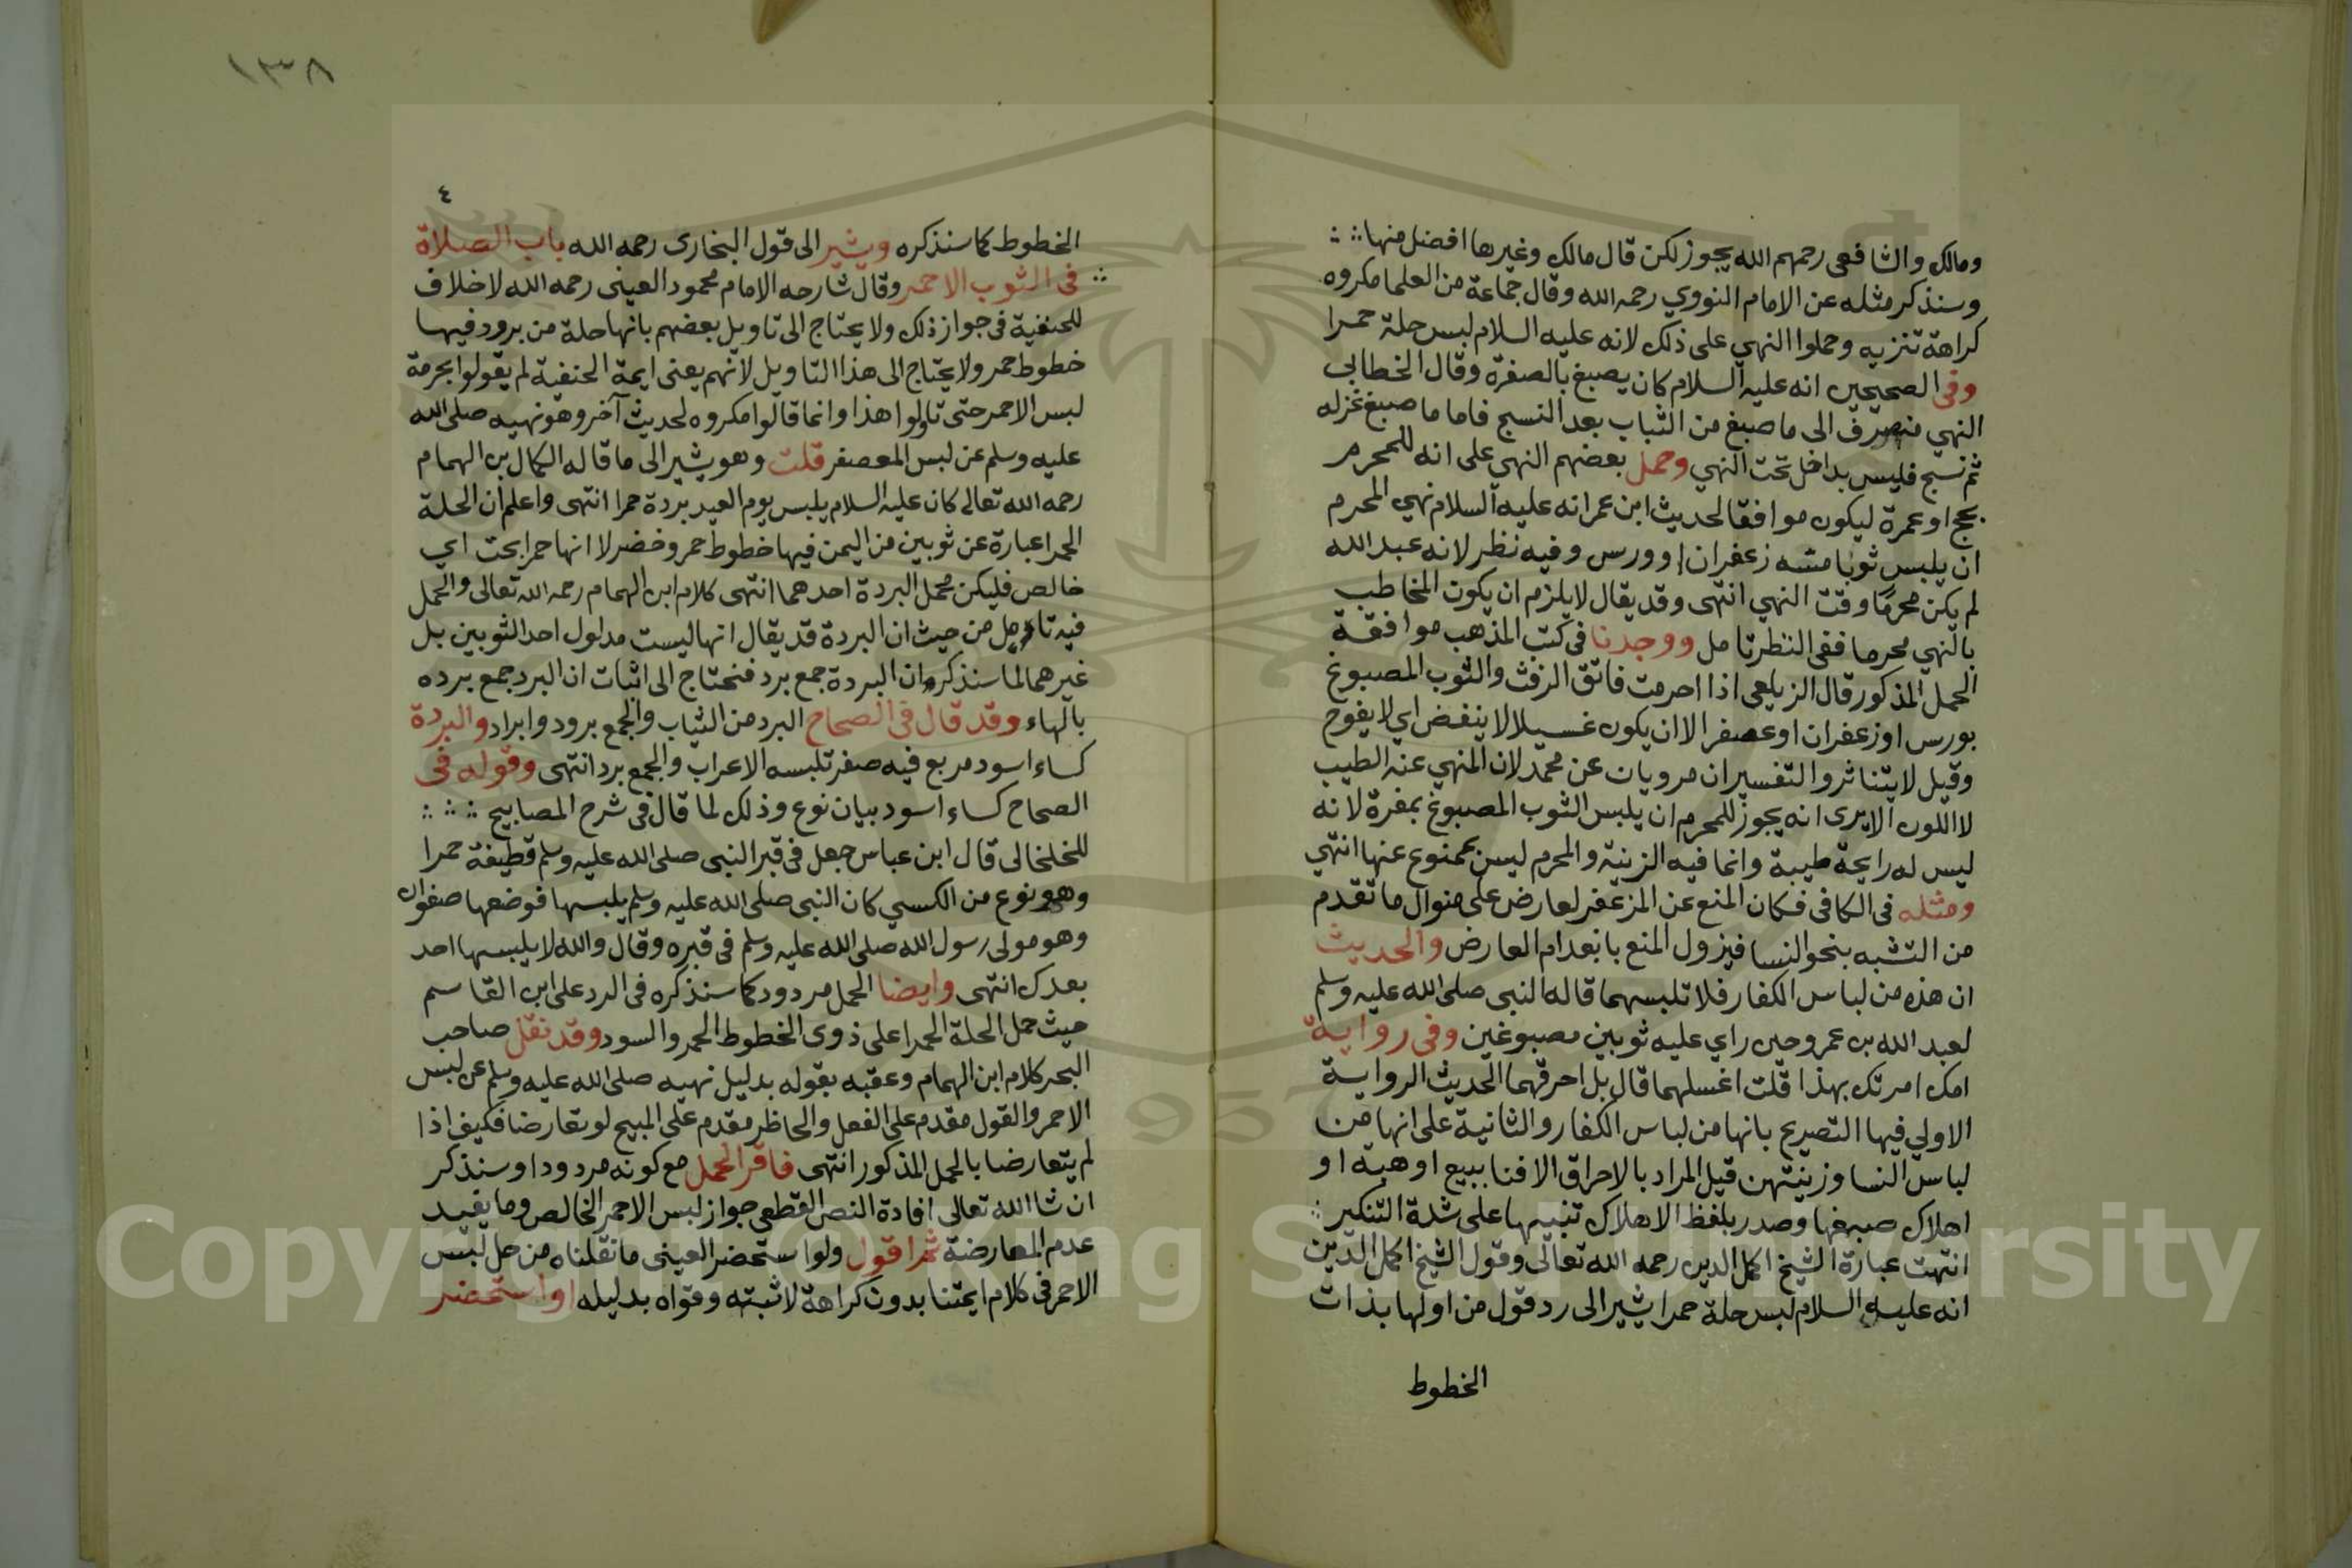 ومالك والشافعى رحمهم الله يجوز لكن قال مالك وغيرها افضل منها
وسنذكر مثله عن الامام النووي رحمه الله وقال جماعة من العلما مكروه
كراهة تنزيه وحملوا النهي على ذلك لانه عليه السلام لبس حلة حمرا
وفى الصحيحين انه عليه السلام كان يصبغ بالصفرة وقال الخطابى
النهي منصرف الى ما صبغ من الثياب بعد النسج فاما ما صبغ غزله
ثم نسج فليس بداخل تحت النهي وحمل بعضهم النهي على انه للمحرم
بحج او عمرة ليكون موافقا لحديث ابن عمر انه عليه السلام نهي المحرم
ان يلبس ثوبا مسه زعفران او ورس وفيه نظر لانه عبد الله
لم يكن محرمًا وقت النهي انتهى وقد يقال لا يلزم ان يكون المخاطب
بالنهي محرما ففى النظر تامل ووجدنا فى كتب المذهب موافقة
الحمل المذكور قال الزيلعى اذا احرمت فاتق الرفث والثوب المصبوغ
بورس او زعفران او عصفر الا ان يكون غسيلا لا ينفض اي لا يفوح
وقيل لا يتناثر والتفسيران مرويان عن محمد لان المنهي عنه الطيب
لا اللون الا يرى انه يجوز للمحرم ان يلبس الثوب المصبوغ بمغرة لانه
ليس له رايحة طيبة وانما فيه الزينة والمحرم ليس بممنوع عنها انتهي
ومثله فى الكافى فكان المنع عن المزعفر لعارض على منوال ما تقدم
من التشبه بنحو النسا فيزول المنع بانعدام العارض والحديث
ان هذه من لباس الكفار فلا تلبسهما قاله النبى صلى الله عليه وسلم
لعبد الله بن عمرو حين راي عليه ثوبين مصبوغين وفى رواية
امك امرتك بهذا قلت اغسلهما قال بل احرقهما الحديث الرواية
الاولي فيها التصريح بانها من لباس الكفار والثانية على انها من
لباس النسا وزينتهن قيل المراد بالاحراق الافنا ببيع او هبة او
اهلاك صبغها وصدر بلفظ الاهلاك تنبيها على شدة التنكير
انتهت عبارة الشيخ اكمل الدين رحمه الله تعالى وقول الشيخ اكمل الدين
انه عليه السلام لبس حلة حمرا يشير الى رد قول من اولها بذات
الخطوط
١٣٨
٤
الخطوط كما سنذكره ويشير الى قول البخارى رحمه الله باب الصلاة
فى الثوب الاحمر وقال شارحه الامام محمود العينى رحمه الله لا خلاف
للحنفية فى جواز ذلك ولا يحتاج الى تاويل بعضهم بانها حلة من برود فيها
خطوط حمر ولا يحتاج الى هذا التاويل لانهم يعنى ايمة الحنفية لم يقولوا بحرمة
لبس الاحمر حتى تاولوا هذا وانما قالوا مكروه لحديث آخر وهو نهيه صلى الله
عليه وسلم عن لبس المعصفر قلت وهو يشير الى ما قاله الكمال بن الهمام
رحمه الله تعالى كان عليه السلام يلبس يوم العيد بردة حمرا انتهى واعلم ان الحلة
الحمرا عبارة عن ثوبين من اليمن فيها خطوط حمر وخضر لا انها حمرا بحت اي
خالص فليكن محمل البردة احدهما انتهى كلام ابن الهمام رحمه الله تعالى والحمل
فيه تامل من حيث ان البردة قد يقال انها ليست مدلول احد الثوبين بل
غيرهما لما سنذكر وان البردة جمع برد فنحتاج الى اثبات ان البرد جمع برده
بالهاء وقد قال فى الصحاح البرد من الثياب والجمع برود وابراد والبردة
كساء اسود مربع فيه صفر تلبسه الاعراب والجمع برد انتهى وقوله فى
الصحاح كساء اسود بيان نوع وذلك لما قال فى شرح المصابيح
للخلخالى قال ابن عباس جعل فى قبر النبى صلى الله عليه وسلم قطيفة حمرا
وهو نوع من الكسي كان النبى صلى الله عليه وسلم يلبسها فوضعها صفوان
وهو مولى رسول الله صلى الله عليه وسلم فى قبره وقال والله لا يلبسها احد
بعدك انتهى وايضا الحمل مردود كما سنذكره فى الرد على ابن القاسم
حيث حمل الحلة الحمرا على ذوى الخطوط الحمر والسود وقد نقل صاحب
البحر كلام ابن الهمام وعقبه بقوله بدليل نهيه صلى الله عليه وسلم عن لبس
الاحمر والقول مقدم على الفعل والحاظر مقدم على المبيح لو تعارضا فكيف اذا
لم يتعارضا بالحمل المذكور انتهى فاقر الحمل مع كونه مردودا وسنذكر
ان شا الله تعالى افادة النص القطعى جواز لبس الاحمر الخالص وما يفيد
عدم المعارضة ثم اقول ولو استحضر العينى ما نقلناه من حل لبس
الاحمر فى كلام ايمتنا بدون كراهة لاثبته وقواه بدليله او استحضر
Copyright © King Saud University
957